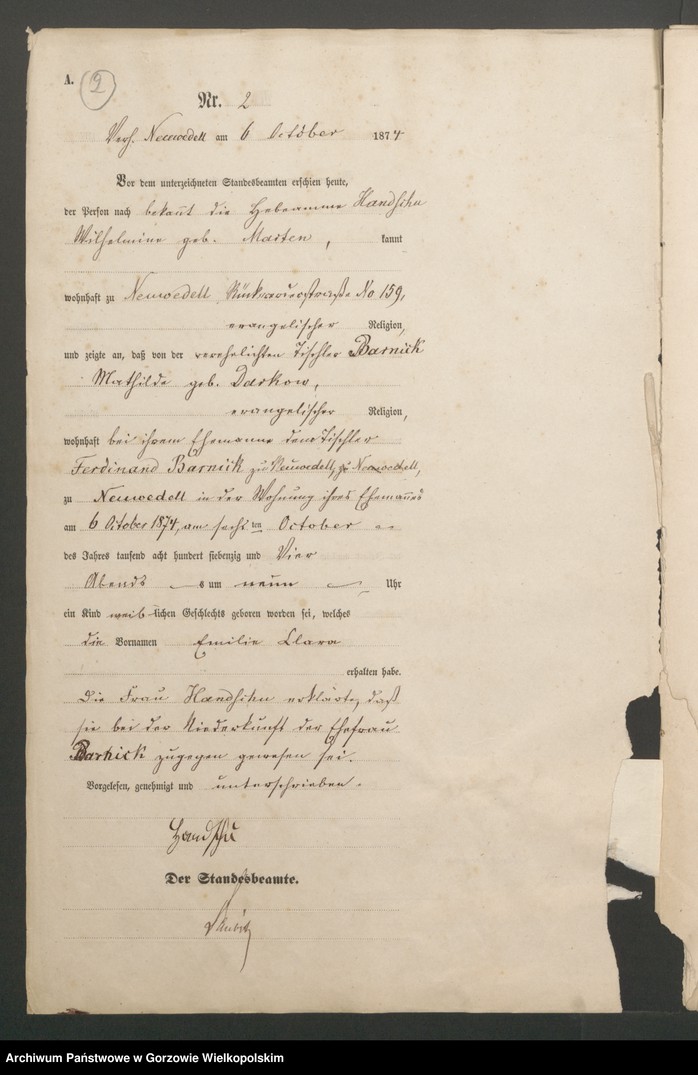 A.
2
Nr. 2
Verh. Neuwedell am 6 October 1874
Vor dem unterzeichneten Standesbeamten erschien heute,
der Person nach bekannt die Hebeamme Handschu
Wilhelmine geb. Marten, kannt
wohnhaft zu Neuwedell No 159,
evangelischer Religion,
und zeigte an, daß von der verehelichten Tischler Barnick
Mathilde geb. Darkow,
evangelischer Religion,
wohnhaft bei ihrem Ehemanne dem Tischler
Ferdinand Barnick zu Neuwedell, zu Neuwedell,
zu Neuwedell in der Wohnung ihres Ehemannes
am 6 October 1874, am sechs ten October
des Jahres tausend acht hundert siebenzig und Vier
Abends s um neun Uhr
ein Kind weiblichen Geschlechts geboren worden sei, welches
die Vornamen Emilie Clara
erhalten habe.
Die Frau Handschu erklärte, daß
sie bei der Niederkunft der Ehefrau
Barnick zugegen gewesen sei.
Vorgelesen, genehmigt und unterschrieben.
Handschu
Der Standesbeamte.
Archiwum Państwowe w Gorzowie Wielkopolskim